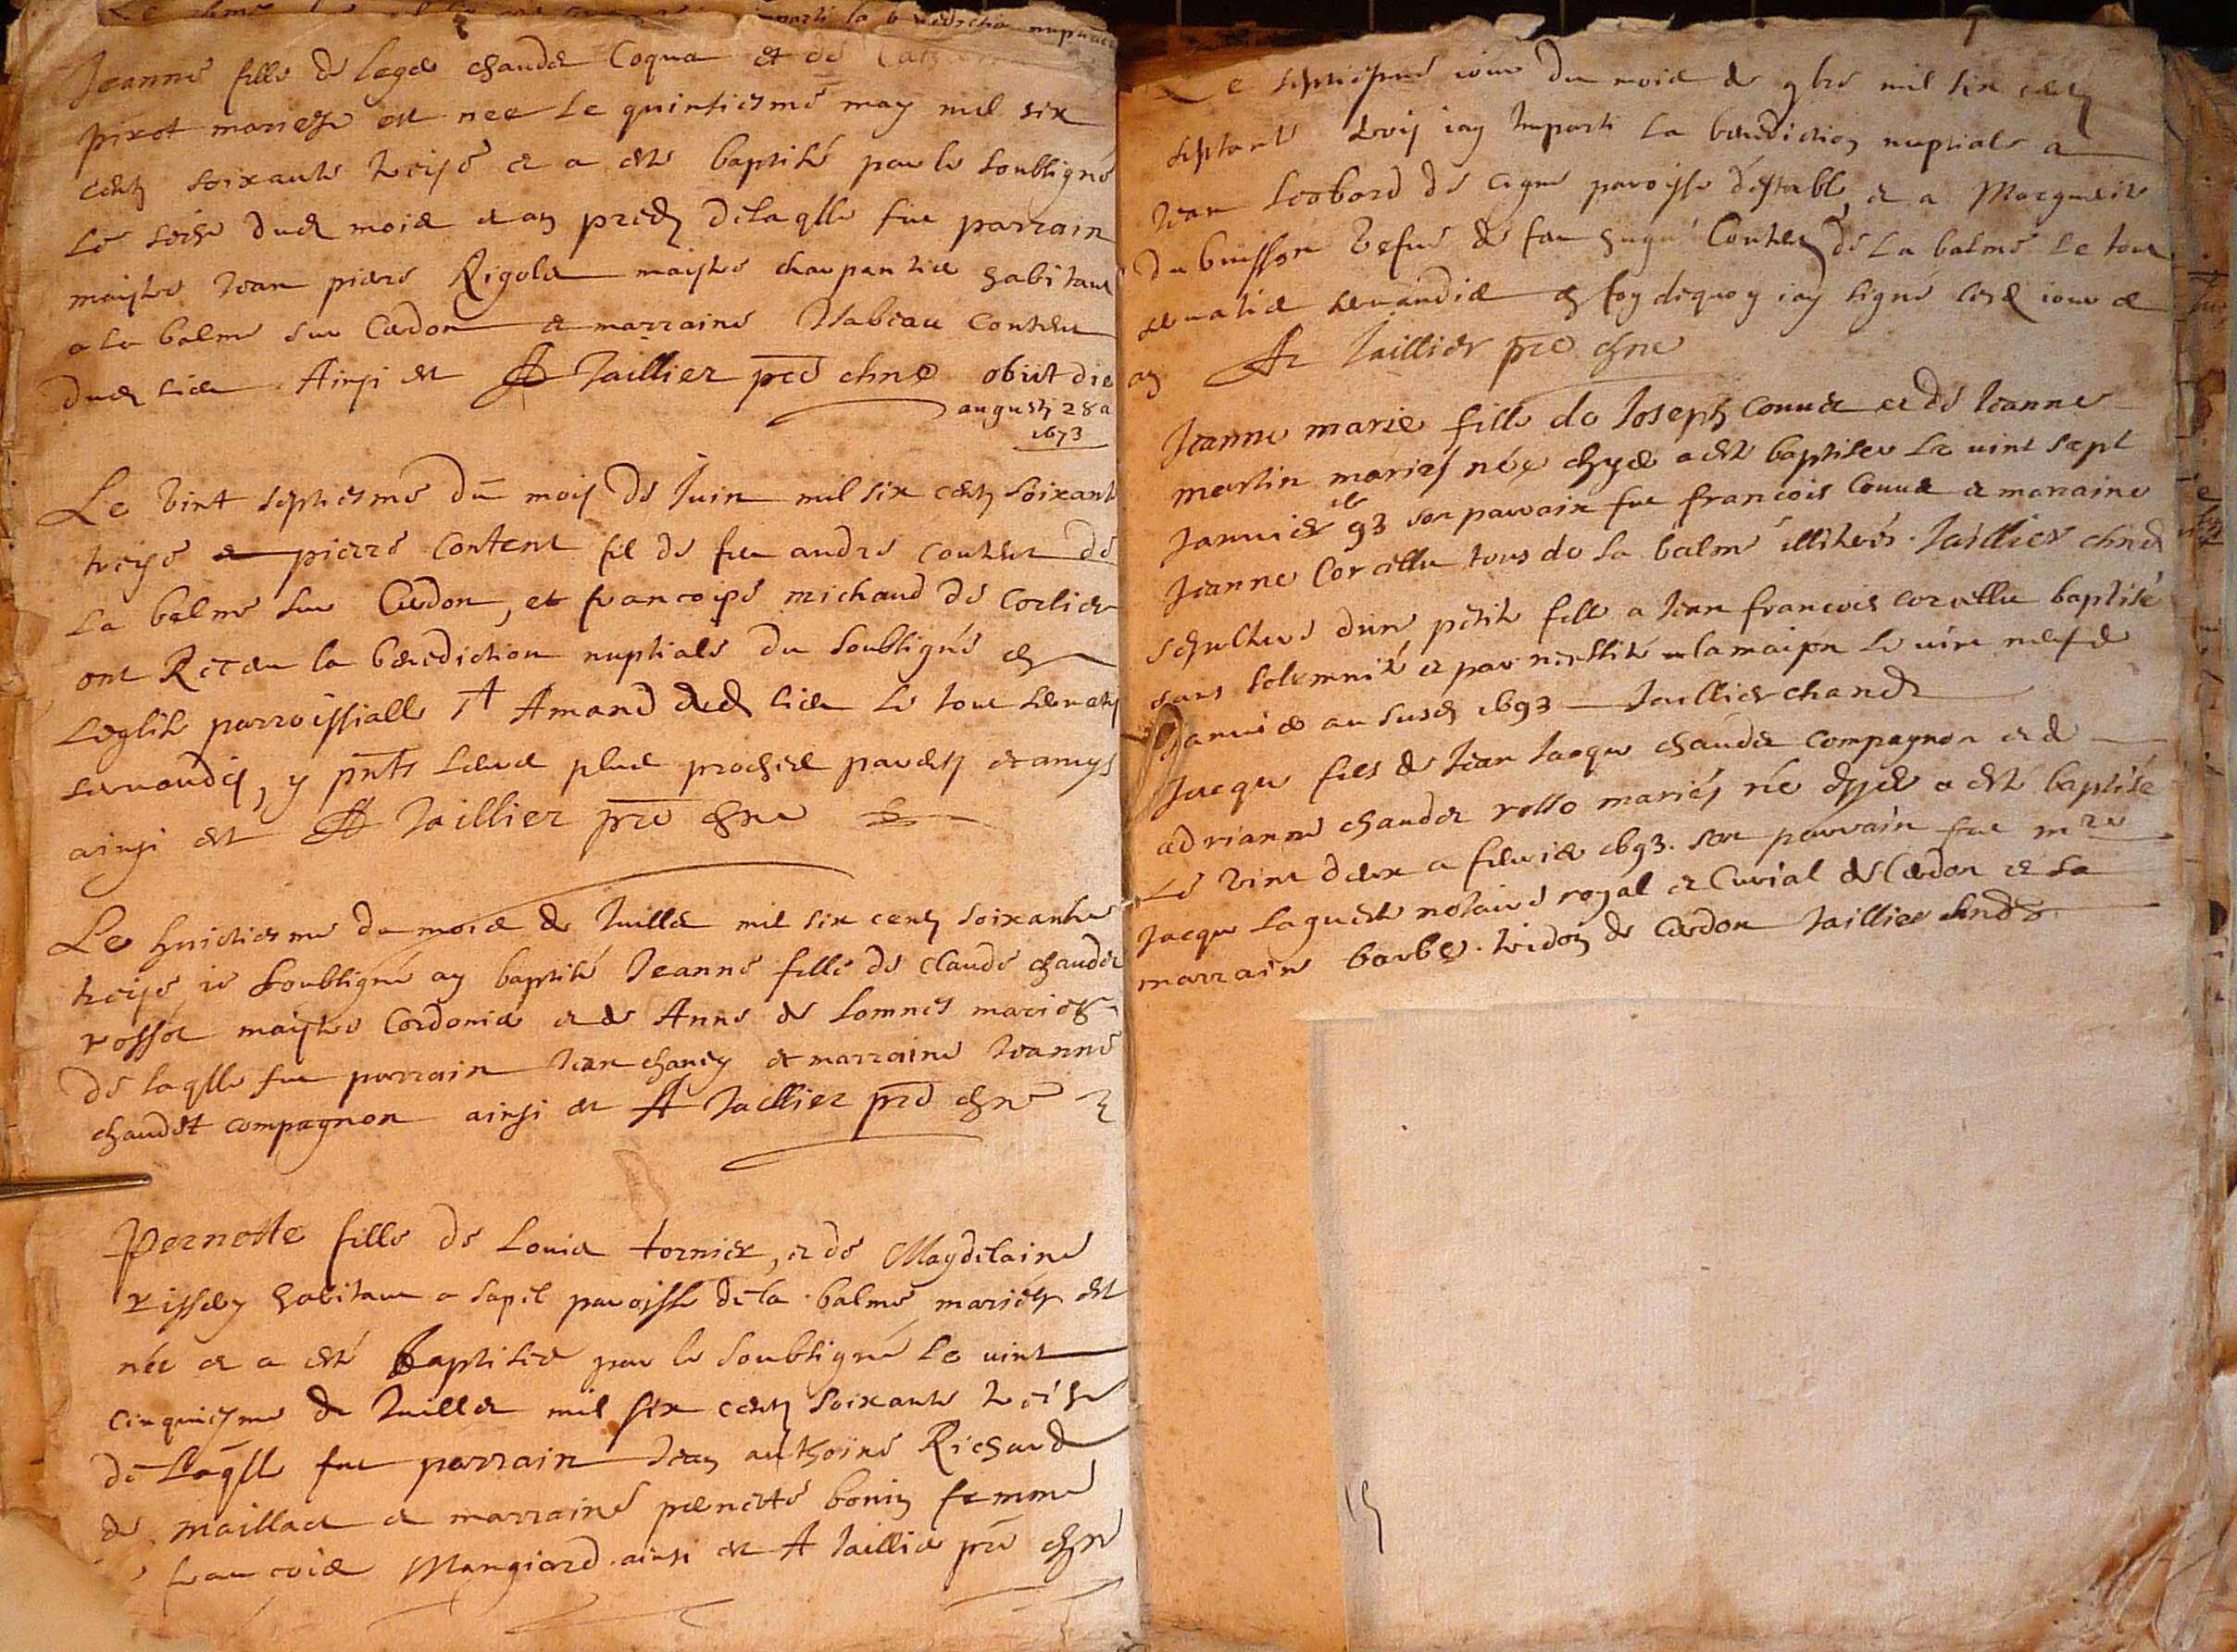 imparti la benediction nuptiale
Jeanne fille de leger chaudet Coqua et de
pirot mariez est nee le quinsiesme may mil six
cents soixante treise et a esté baptisé par le soubsigné
le seise dud moi et an pred de laqlle fut parrain
maistre Jean piere Rigole maistre charpantier habitant
a la balme sur Cerdon et marraine Isabeau Content
dud lieu Ainsi est A Taillier pre chne obiit die
augusti 28a
1673
Le vint septiesme du mois de Juin mil six cents soixante
treise pierre Content fil de feu andre Content de
la balme sur Cerdon, et francoise michaud de Corlier
ont Receu la benediction nuptiale du soubsigné en
leglise parroissialle St Amand dud lieu le tout servatis
servandis, y pnts leurs plus proches parents et amys
ainsi est A Taillier pre chne
Le huictiesme du mois de Juillet mil six cents soixante
treise ie soubsigné ay baptisé Jeanne fille de claude chaudet
rosset maistre Cordonier et de Anne de lomnes mariez
de laqlle fut parrain Jean chaney et marraine Jeanne
chaudet compagnon ainsi est A Taillier pre chne
Pernette fille de Louis tornier, et de Magdelaine
rissey habitant a sapel paroisse de la balme mariez est
née et a esté Baptisee par le soubsigné le vint
cinquiesme de Juillet mil six cents soixante treise
de laqlle fut parrain Jean anthoine Richard
de maillat et marraine pernette bonin femme
francois Mangiard ainsi est A Taillier pre chne
Le septiesme iour du mois de 9bre mil six cents
septante trois iay Imparti la benediction nuptiale a
Jean leobord de paroisse destable, et a Marguerite
du buisson vefve de feu hugue Content de la balme le tout
servatis servandis en foy dequoy iay signé lesd iour et
an A Taillier pre chne
Jeanne marie fille de Joseph Convert et de Jeanne
martin mariés née hyer a esté baptisée le vint sept
Janvier 1693 son parrain fut francois Convert et marraine
Jeanne Corcellu tous de la balme illiterés. Taillier chne
sepulture dun petit fils a Jean francois corcellu baptisé
sans solemnité et par necessité a la maison le vint neufe
Janvier an susd 1693 Taillier chane
Jacque fils de Jean Jacque chaudet compagnon et de
adrianne chaudet rollo mariés né hyer a esté baptisé
le vint deux a fevrier 1693. son parrain fut mre
Jacque laguete notaire royal et Curial de Cerdon et sa
marraine barbe tridon de Cerdon Taillier chne